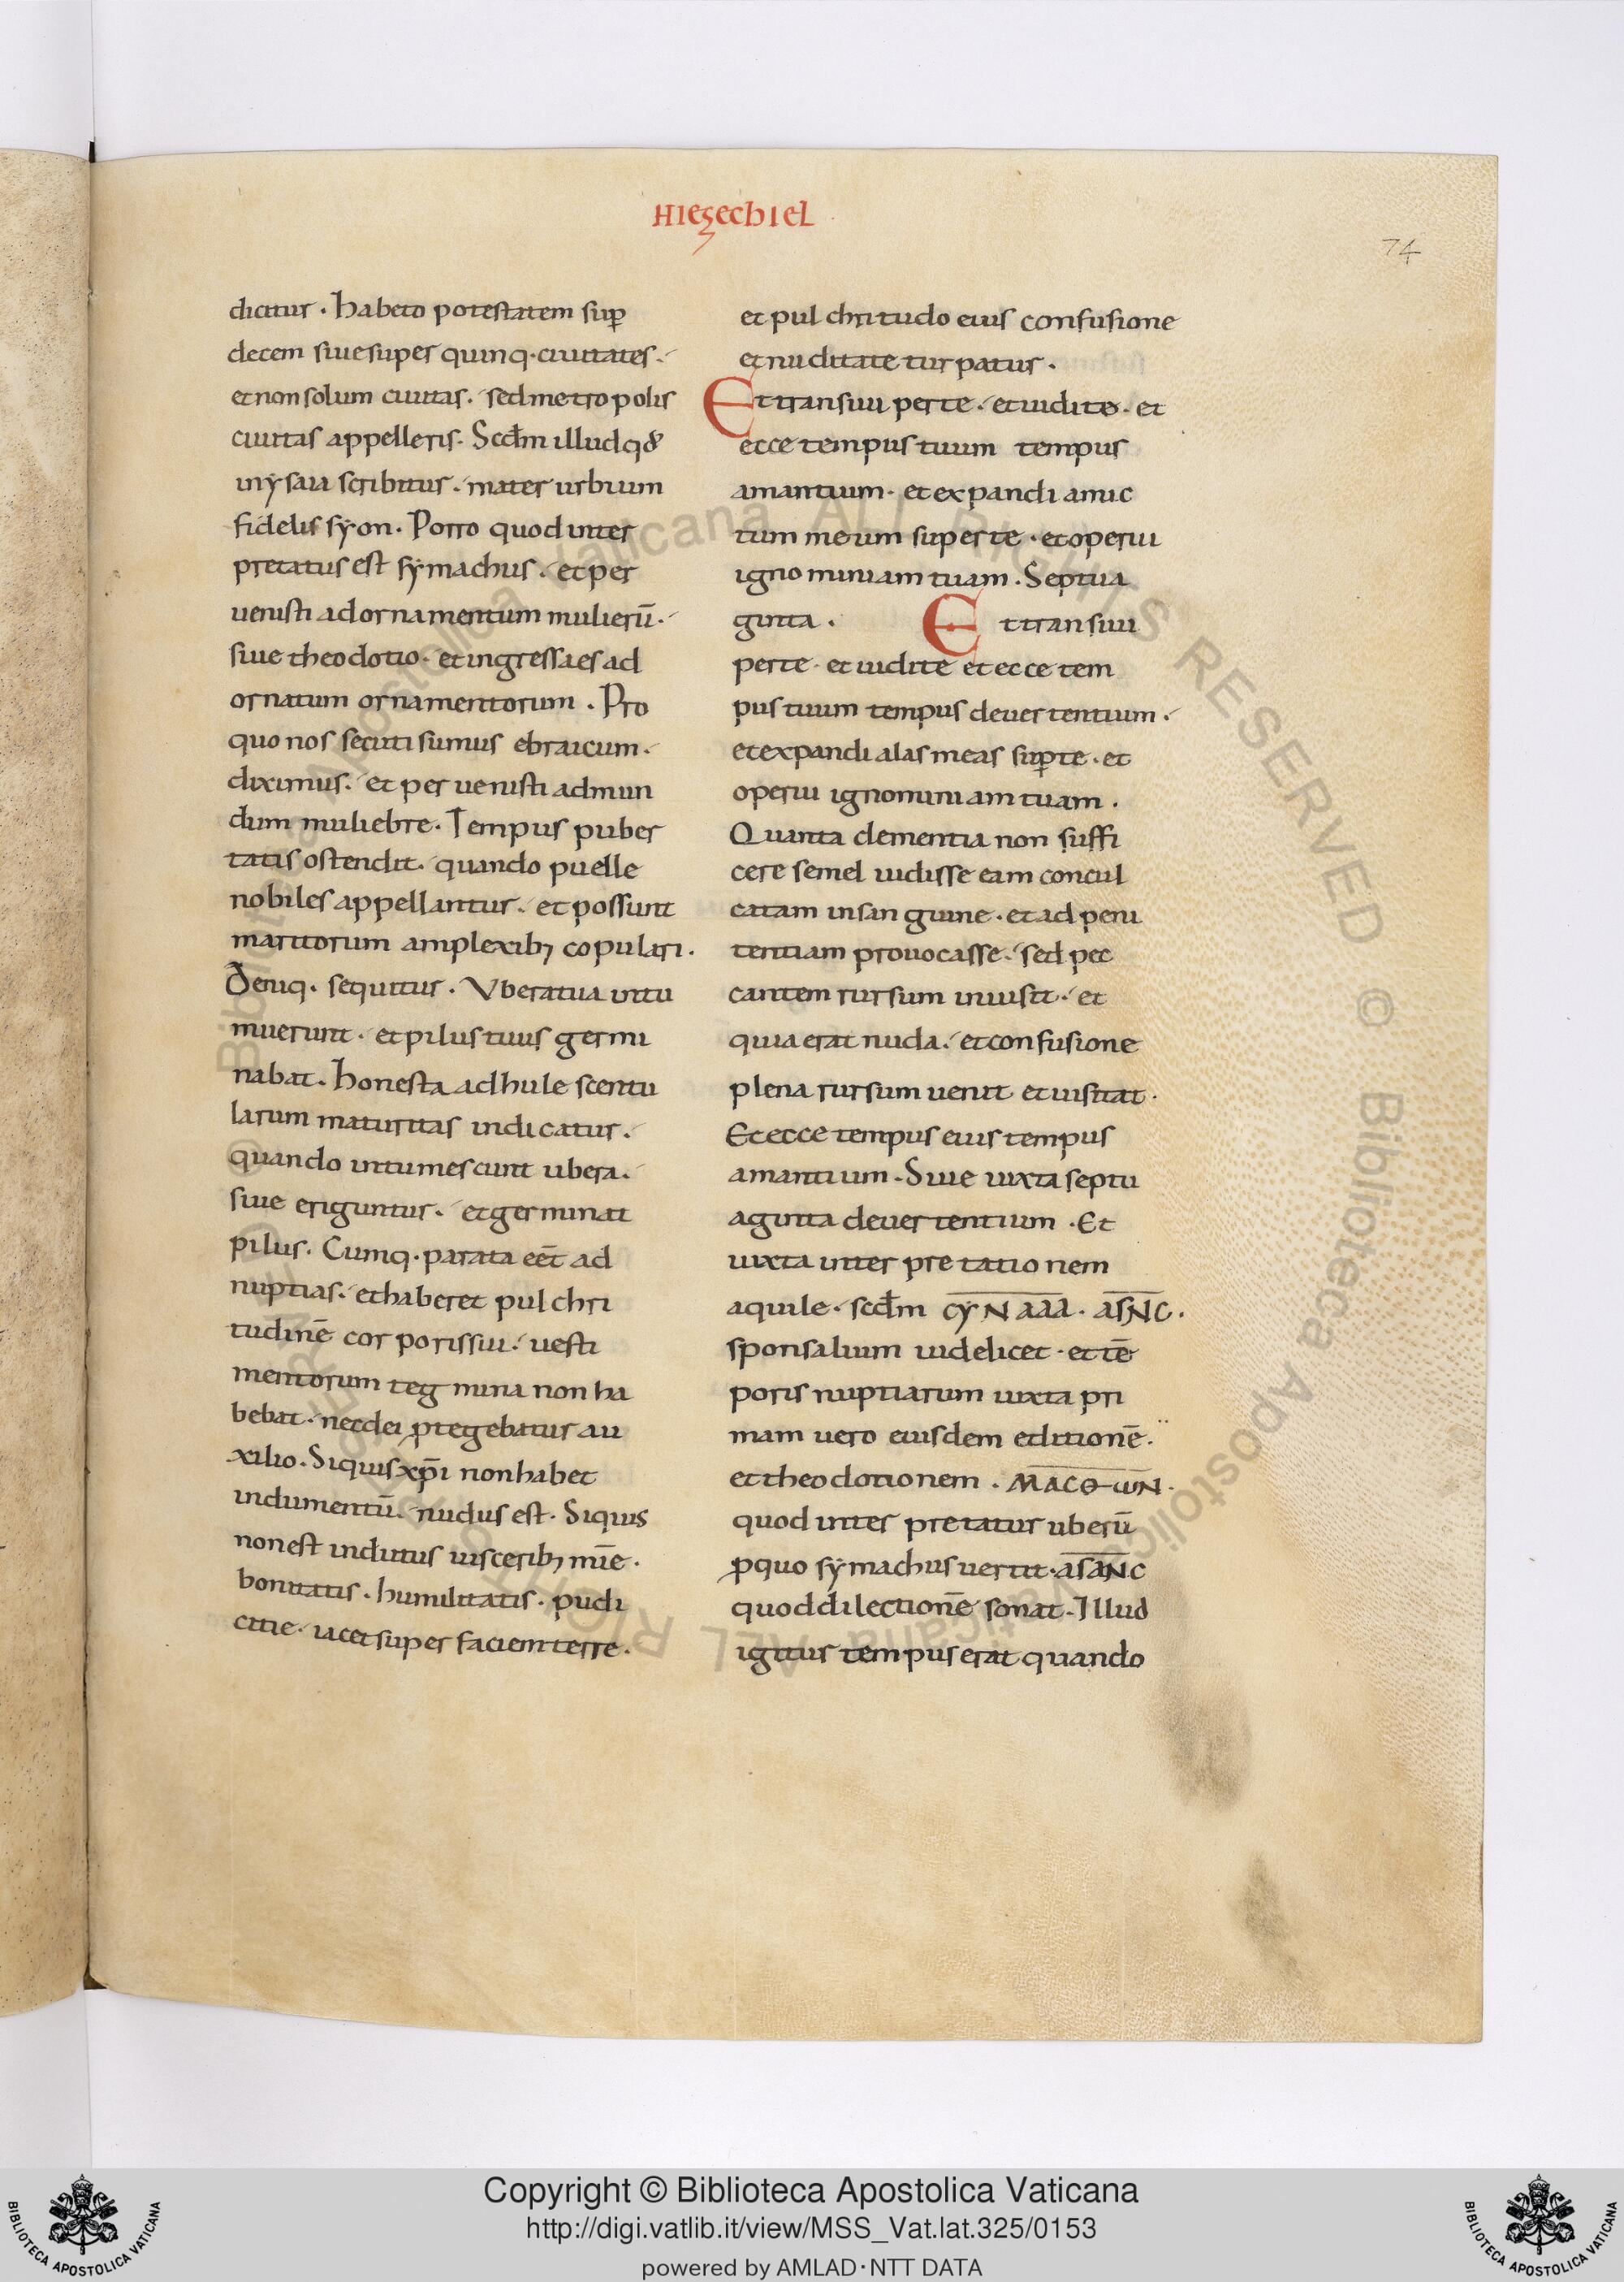 HIEZECHIEL
74
dicitur . Habeto potestatem sup̄
decem siue super quinq · ciuitates .
et non solum ciuitas . sed metropolis
ciuitas appelleris . Scdm̄ illud qđ
in ysaia scribitur . mater urbium
fidelis syon . Porro quod inter
pretatus est symachus . et per
uenisti ad ornamentum mulierū .
siue theodotio . et ingressa es ad
ornatum ornamentorum . Pro
quo nos secuti sumus ebraicum .
diximus . et peruenisti ad mun
dum muliebre . Tempus puber
tatis ostendit . quando puelle
nobiles appellantur . et possunt
maritorum amplexib; copulari .
Deniq . sequitur . Vbera tua intu
muerunt . et pilus tuus germi
nabat . Honesta adhulescentu
larum maturitas indicatur .
quando intumescunt ubera .
siue eriguntur . et germinat
pilus . Cumq . parata eēt ad
nuptias . et haberet pulchri
tudinē corporis sui . uesti
mentorum tegmina non ha
bebat . nec dei ꝓtegebatur au
xilio . Si quis xp̄i non habet
indumentū . nudus est . Si quis
non est indutus uiscerib; mīe .
bonitatis . humilitatis . pudi
citie . iacet super faciem terre .
et pulchritudo eius confusione
et nuditate turpatur .
Et transiui per te . et uidi te . et
ecce tempus tuum tempus
amantium . et expandi amic
tum meum super te . et operui
ignominiam tuam . Septua
ginta . Et transiui
per te . et uidi te et ecce tem
pus tuum tempus deuertentium .
et expandi alas meas sup̄ te . et
operui ignominiam tuam .
Quanta clementia non suffi
cere semel uidisse eam concul
catam in sanguine . et ad peni
tentiam prouocasse . sed pec
cantem rursum inuisit . et
quia erat nuda . et confusione
plena rursum uenit et uisitat .
Et ecce tempus eius tempus
amantium . Siue iuxta septu
aginta deuertentium . Et
iuxta interpretationem
aquile . scdm̄ CYNAAA . ASNC .
sponsalium uidelicet . et tē
poris nuptiarum iuxta pri
mam uero eiusdem editionē .
et theodotionem . MACΘωN .
quod interpretatur uberū
ꝓ quo symachus uertit . ASANC
quod dilectionē sonat . Illud
igitur tempus erat quando
Copyright © Biblioteca Apostolica Vaticana
http://digi.vatlib.it/view/MSS_Vat.lat.325/0153
powered by AMLAD·NTT DATA